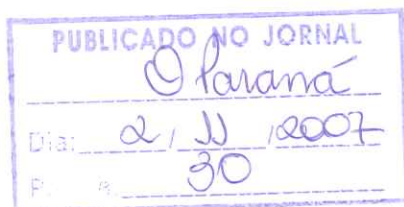 PUBLICADO NO JORNAL
O Paraná
Dia: 2 / 11 / 2007
P. 30